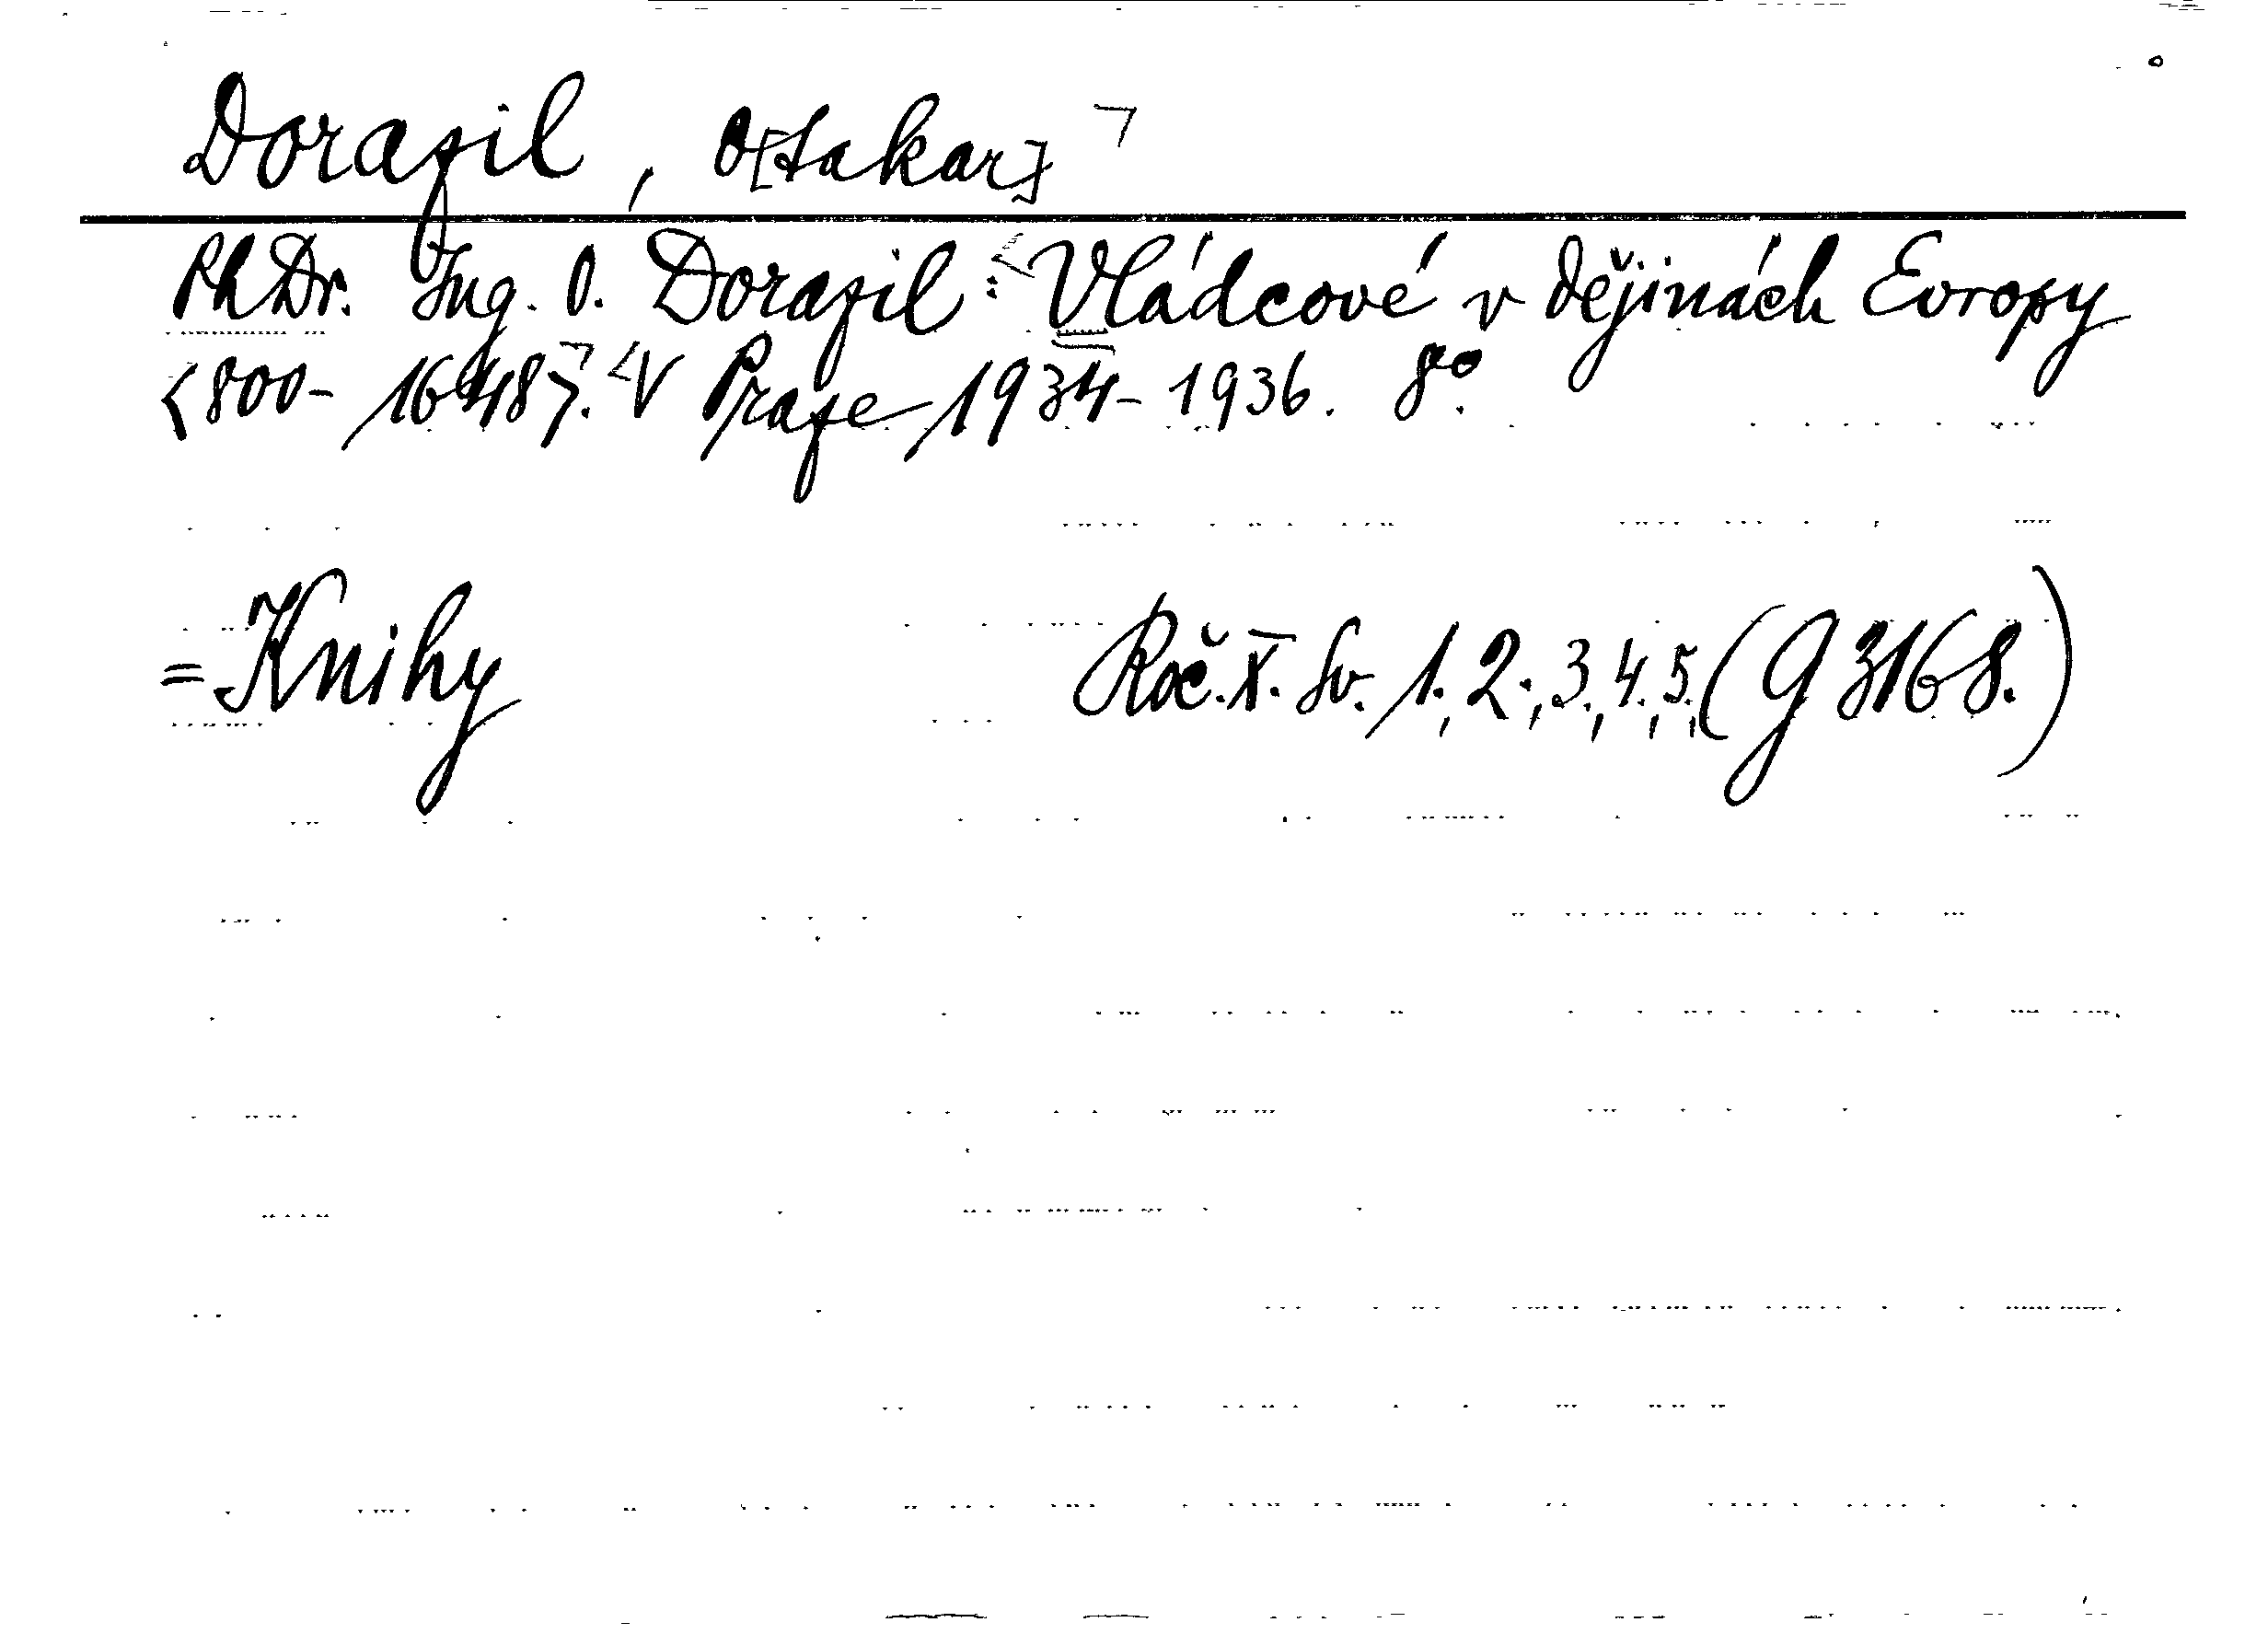 Dorazil, O[takar]
PhDr. Ing. O. Dorazil: Vládcové v dějinách Evropy
<800-1648>. V Praze 1934-1936. 8°.
=Knihy Roč. X. Sv. 1., 2., 3., 4., 5., (G 3168.)